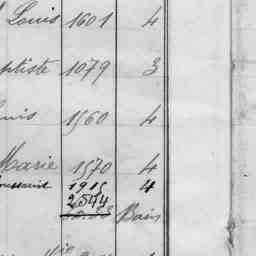 Louis 1601 4
ptiste 1079 3
uis 1560 4
Marie 1570 4
oussaint 1915 4
2544
Bois